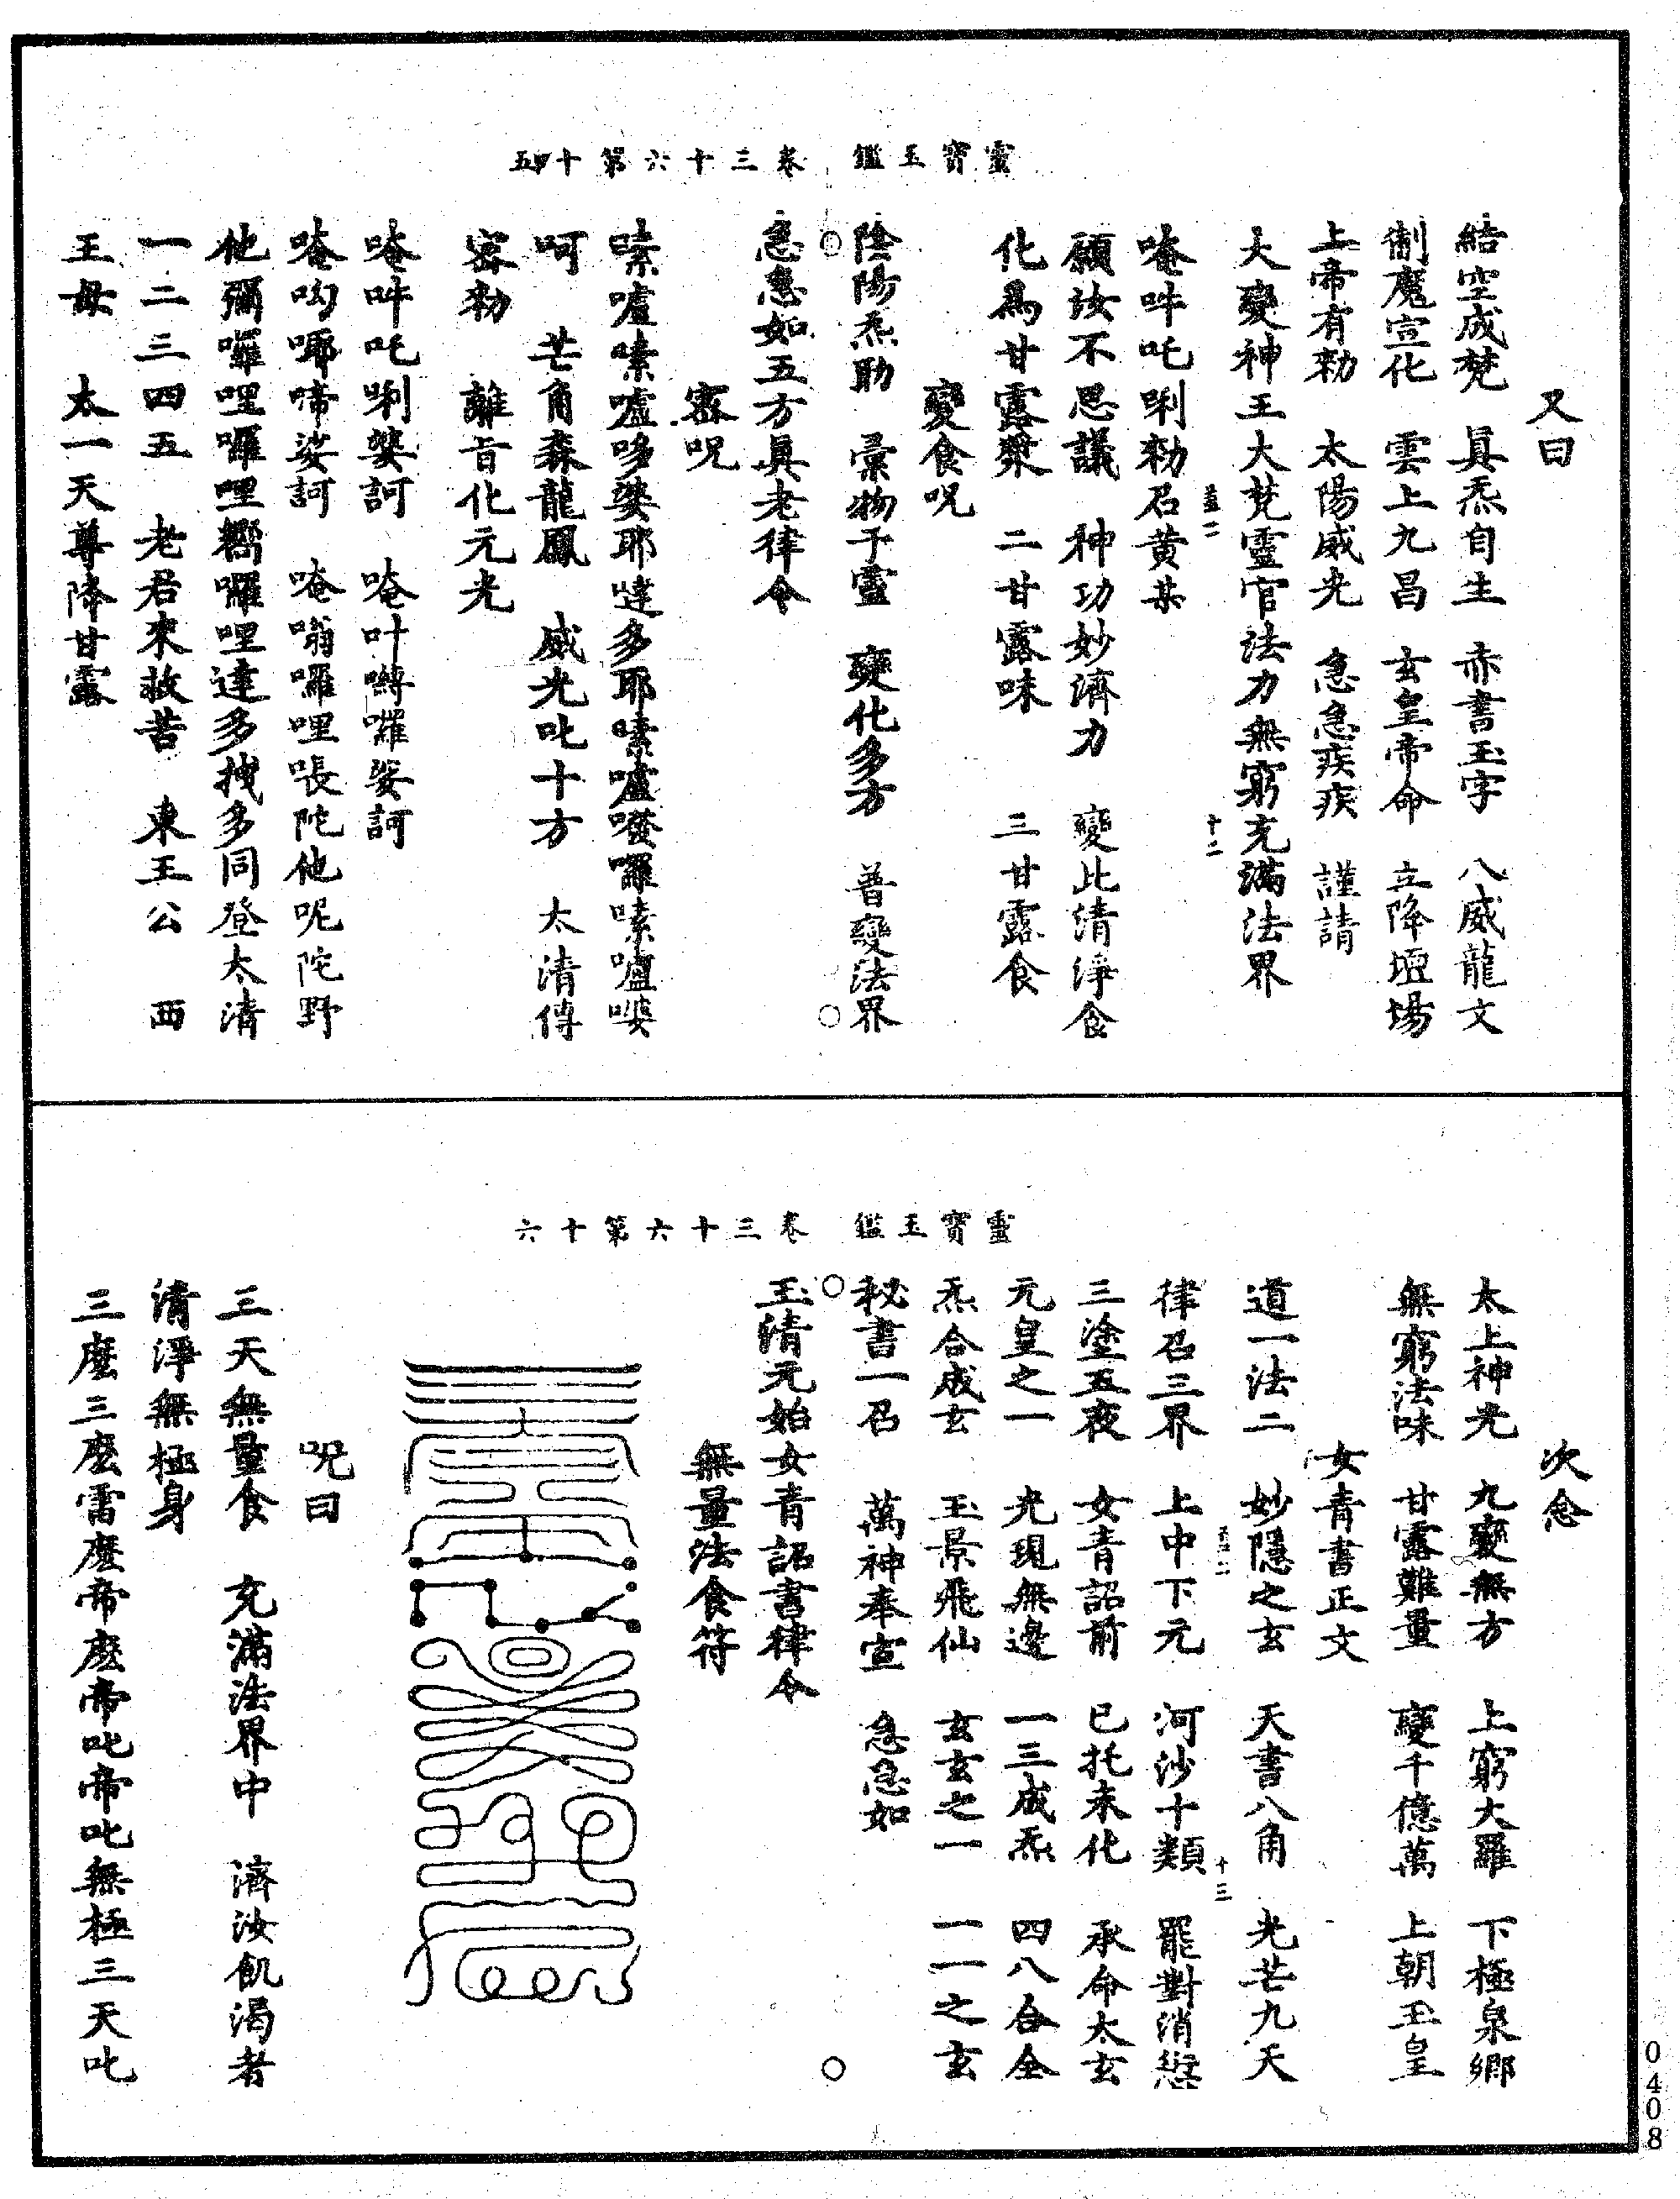 靈寶玉鑑 卷三十六第十四五
又曰
結空成梵 真炁自生 赤書玉字 八威龍文
制魔宣化 雲上九昌 玄皇帝命 立降壇場
上帝有勑 太陽威光 急急疾疾 謹請
大變神王大梵靈官法力無窮充滿法界
唵吽吒唎勑召黃某
願汝不思議 神功妙濟力 變此清淨食
化爲甘露漿 二甘露味 三甘露食
變食呪
陰陽炁助 彙物予靈 變化多方 普變法界
急急如五方真老律令
密呪
嗉嚧嗉嚧哆婆耶噠多耶嗉嚧囉嗉嚧
呵 芒角森龍鳳 威光叱十方 太清傳
密勑 離旨化元光
唵吽吒唎婆訶 唵叶囀囉娑訶
唵呴啼娑訶 唵嗡囉哩陀他呢陀野
他彌囉哩囉哩嚮囉哩達多拽多同登太清
一二三四五 老君來救苦 東王公 西
王母 太一天尊降甘露
靈寶玉鑑 卷三十六第十六
次念
太上神光 九變無方 上窮大羅 下極泉鄉
無窮法味 甘露難量 變千億萬 上朝玉皇
女青書正文
道一法二 妙隱之玄 天書八角 光芒九天
律召三界 上中下元 河沙十類 罷對消愆
三塗五夜 女青詔前 已托未化 承命太玄
元皇之一 光現無邊 一三成炁 四八合全
炁合成玄 玉景飛仙 玄玄之一 一一之玄
秘書一召 萬神奉宣 急急如
玉清元始女青詔書律令
無量法食符
呪曰
三天無量食 充滿法界中 濟汝飢渴者
清淨無極身
三麽三麽雷麽帝麽帝叱帝叱無極三天叱
0408